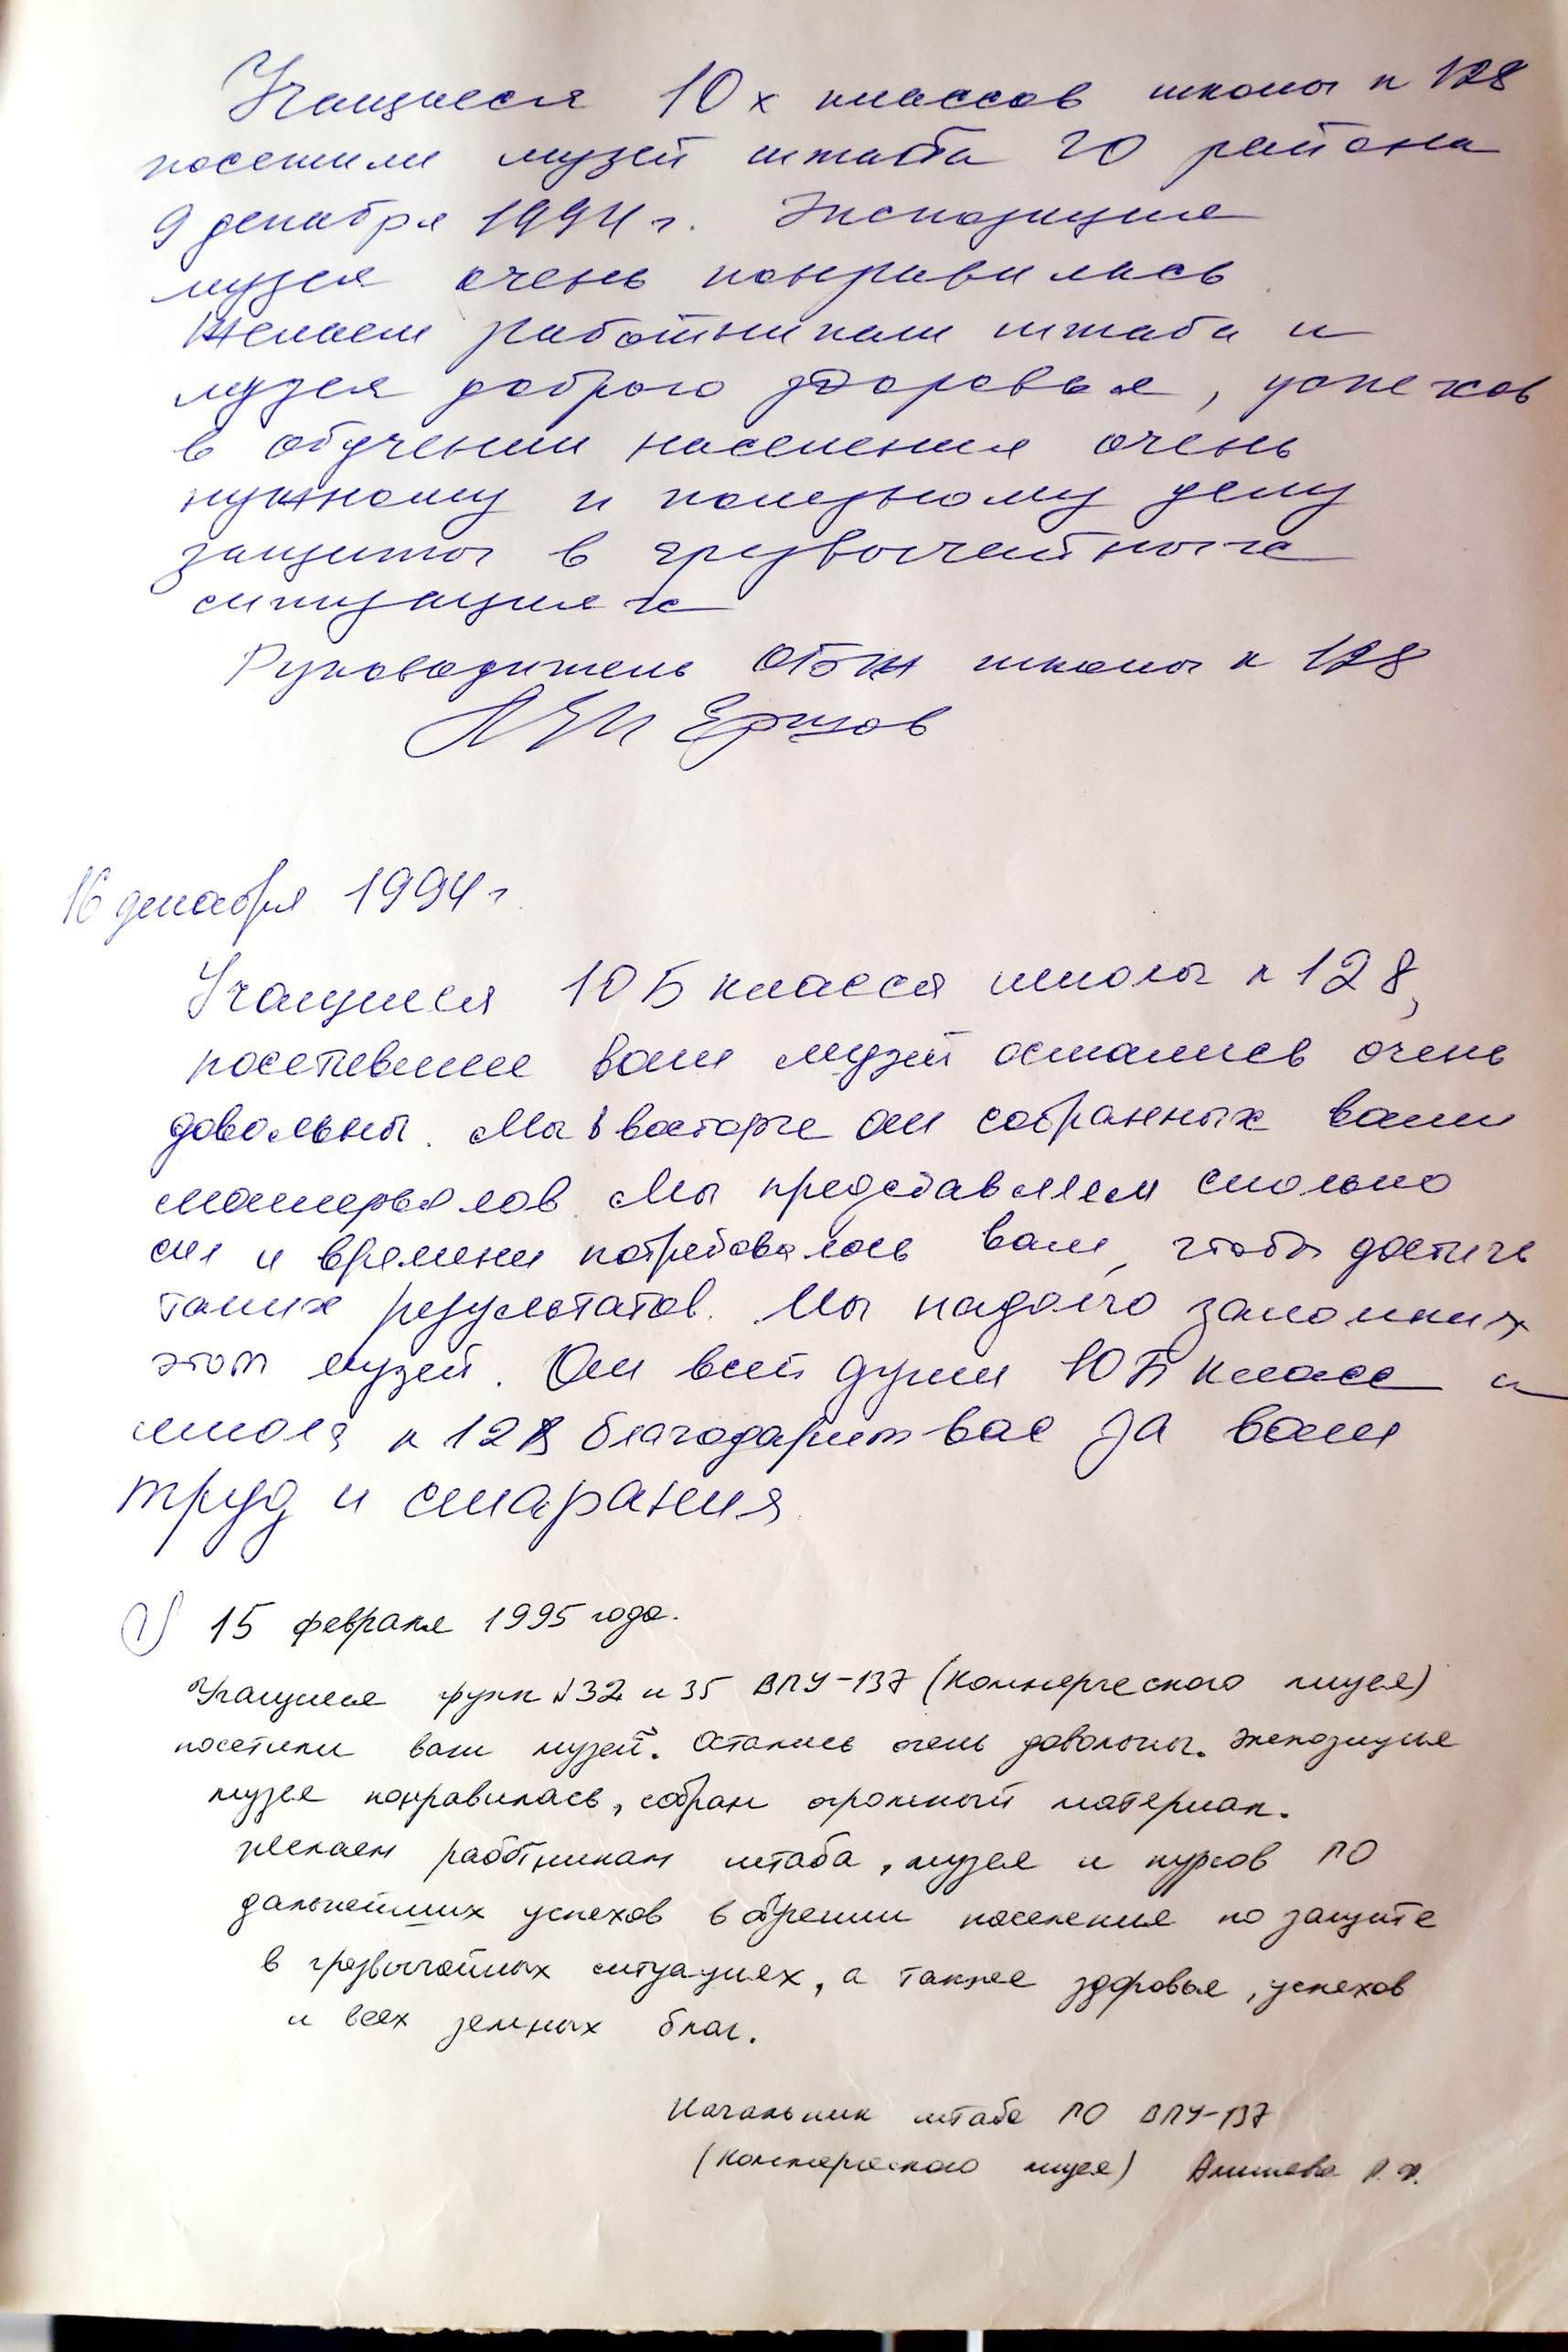 Учащиеся 10х классов школы н 128
посетили музей штаба ГО района
9 декабря 1994 г. Экспозиция
музея очень понравилась
Желаем работникам штаба и
музея доброго здоровья, успехов
в обучении населения очень
нужному и полезному делу
защиты в чрезвычайных
ситуациях
Руководитель ОБЖ школы н 128
Ершов
16 декабря 1994 г
Учащиеся 10 Б класса школы н 128,
посетившие ваш музей остались очень
довольны. Мы в восторге от собранных вами
матерьялов Мы представляем сколько
сил и времени потребовалось вам, чтобы достичь
таких результатов. Мы надолго запомним
этот музей. От всей души 10 Б класс и
школа н 128 благодарит вас за ваши
труд и старания
1) 15 февраля 1995 года.
Учащиеся групп №32 и 35 ВПУ-137 (Коммерческого лицея)
посетили ваш музей. Остались очень довольны. Экспозиция
музея понравилась, собран огромный материал.
Желаем работникам штаба, музея и курсов ГО
дальнейших успехов в обучении населения по защите
в чрезвычайных ситуациях, а также здоровья, успехов
и всех земных благ.
Начальник штаба ГО ВПУ-137
(Коммерческого лицея)